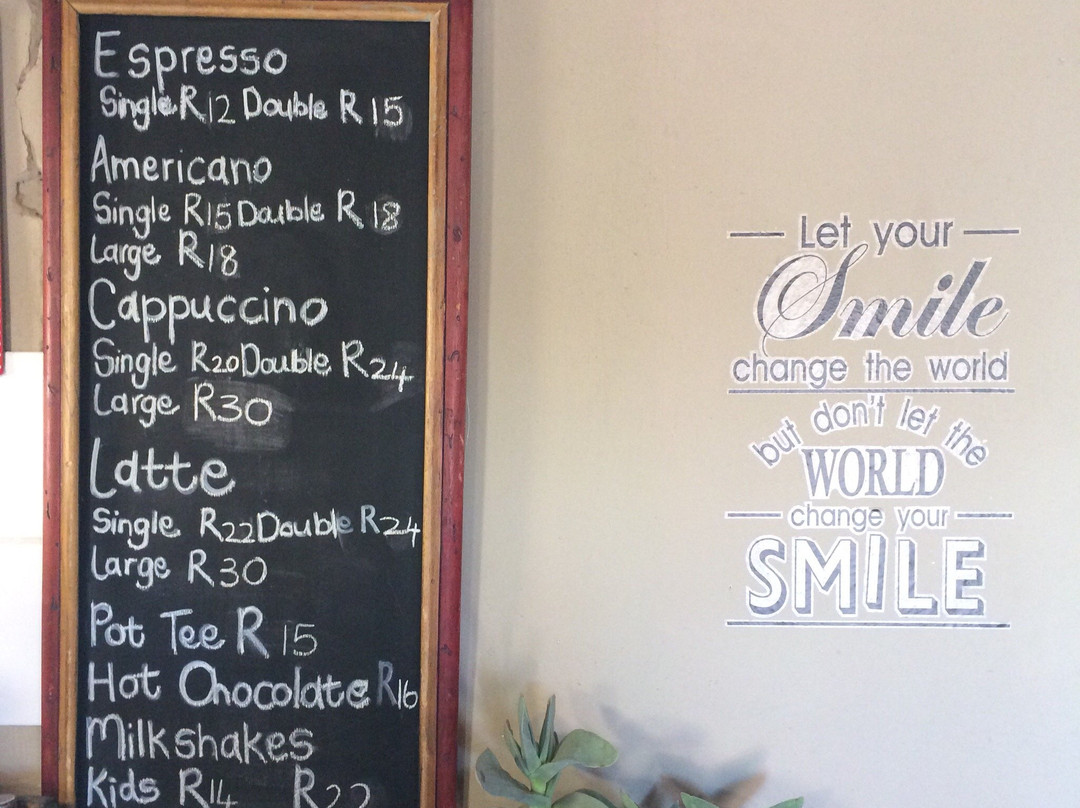 Espresso
Single R12 Double R15
Americano
Single R15 Double R18
Large R18
Cappuccino
Single R20 Double R24
Large R30
Latte
Single R22 Double R24
Large R30
Pot Tee R 15
Hot Chocolate R16
Milkshakes
Kids R14 R22
Let your
Smile
change the world
but don't let the
WORLD
change your
SMILE